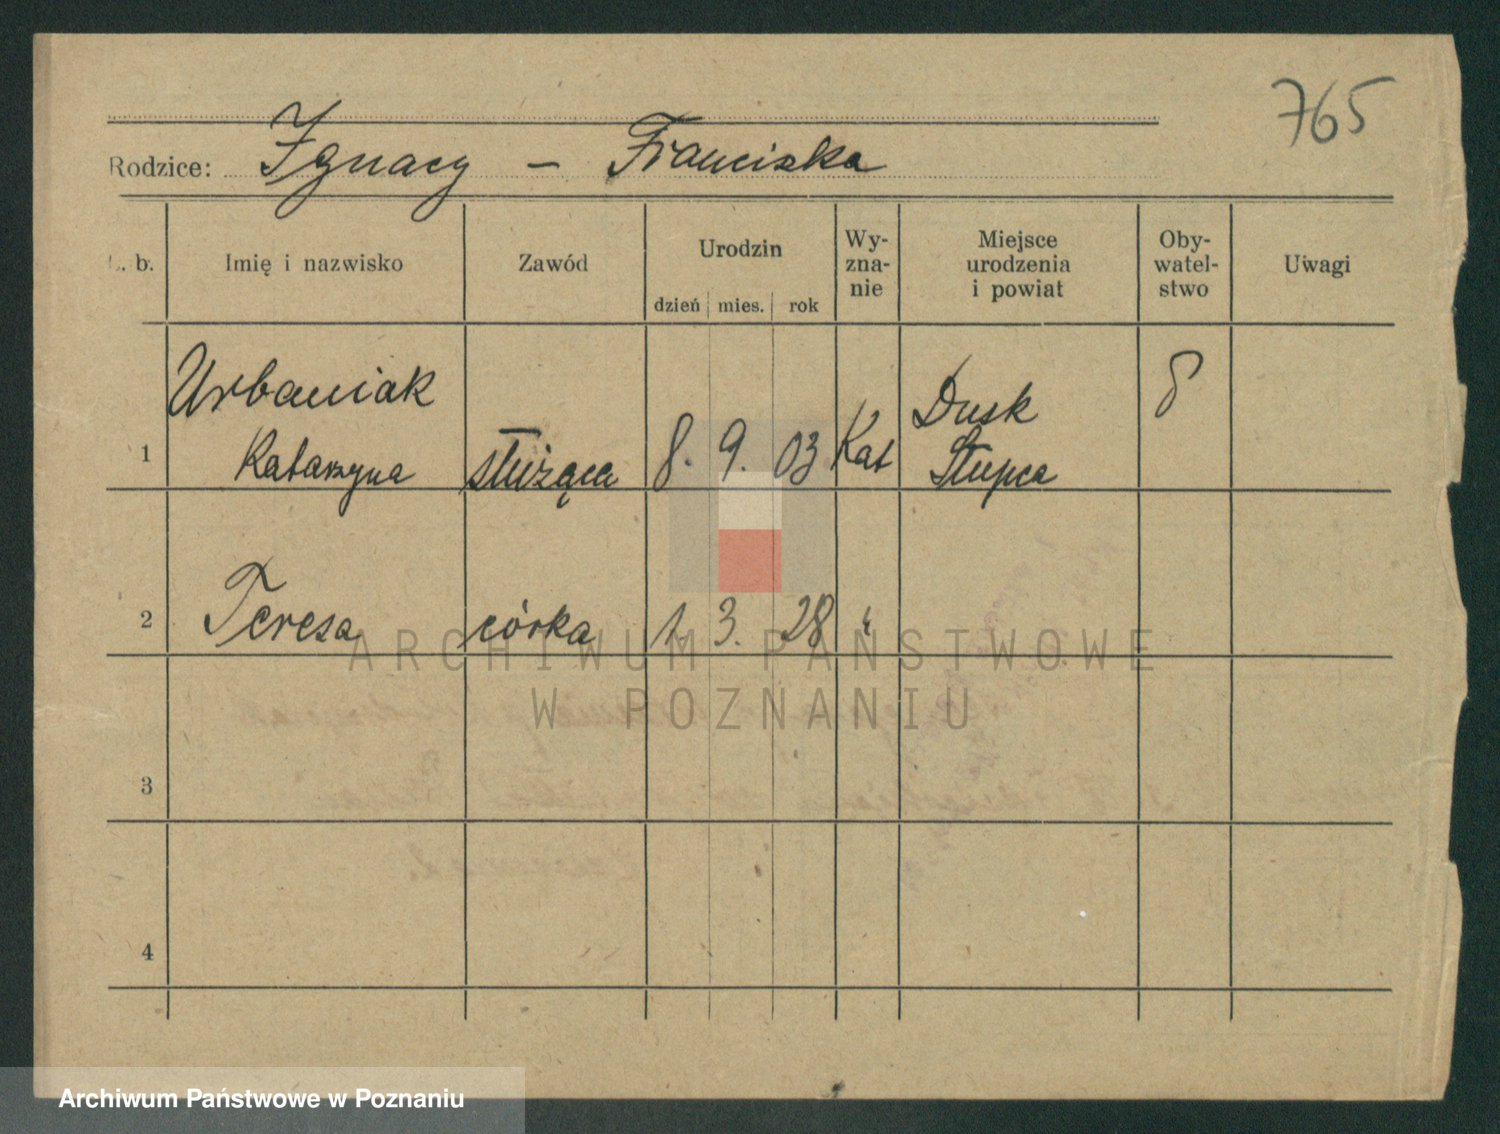 765
Rodzice: Ignacy – Franciszka
L. b. Imię i nazwisko Zawód Urodzin dzień mies. rok Wy-zna-nie Miejsce urodzenia i powiat Oby-watel-stwo Uwagi
Urbaniak Dusk
1 Katarzyna służąca 8. 9. 03 Kat Słupca
2 Teresa córka 1. 3. 28 "
ARCHIWUM PAŃSTWOWE
W POZNANIU
3
4
Archiwum Państwowe w Poznaniu